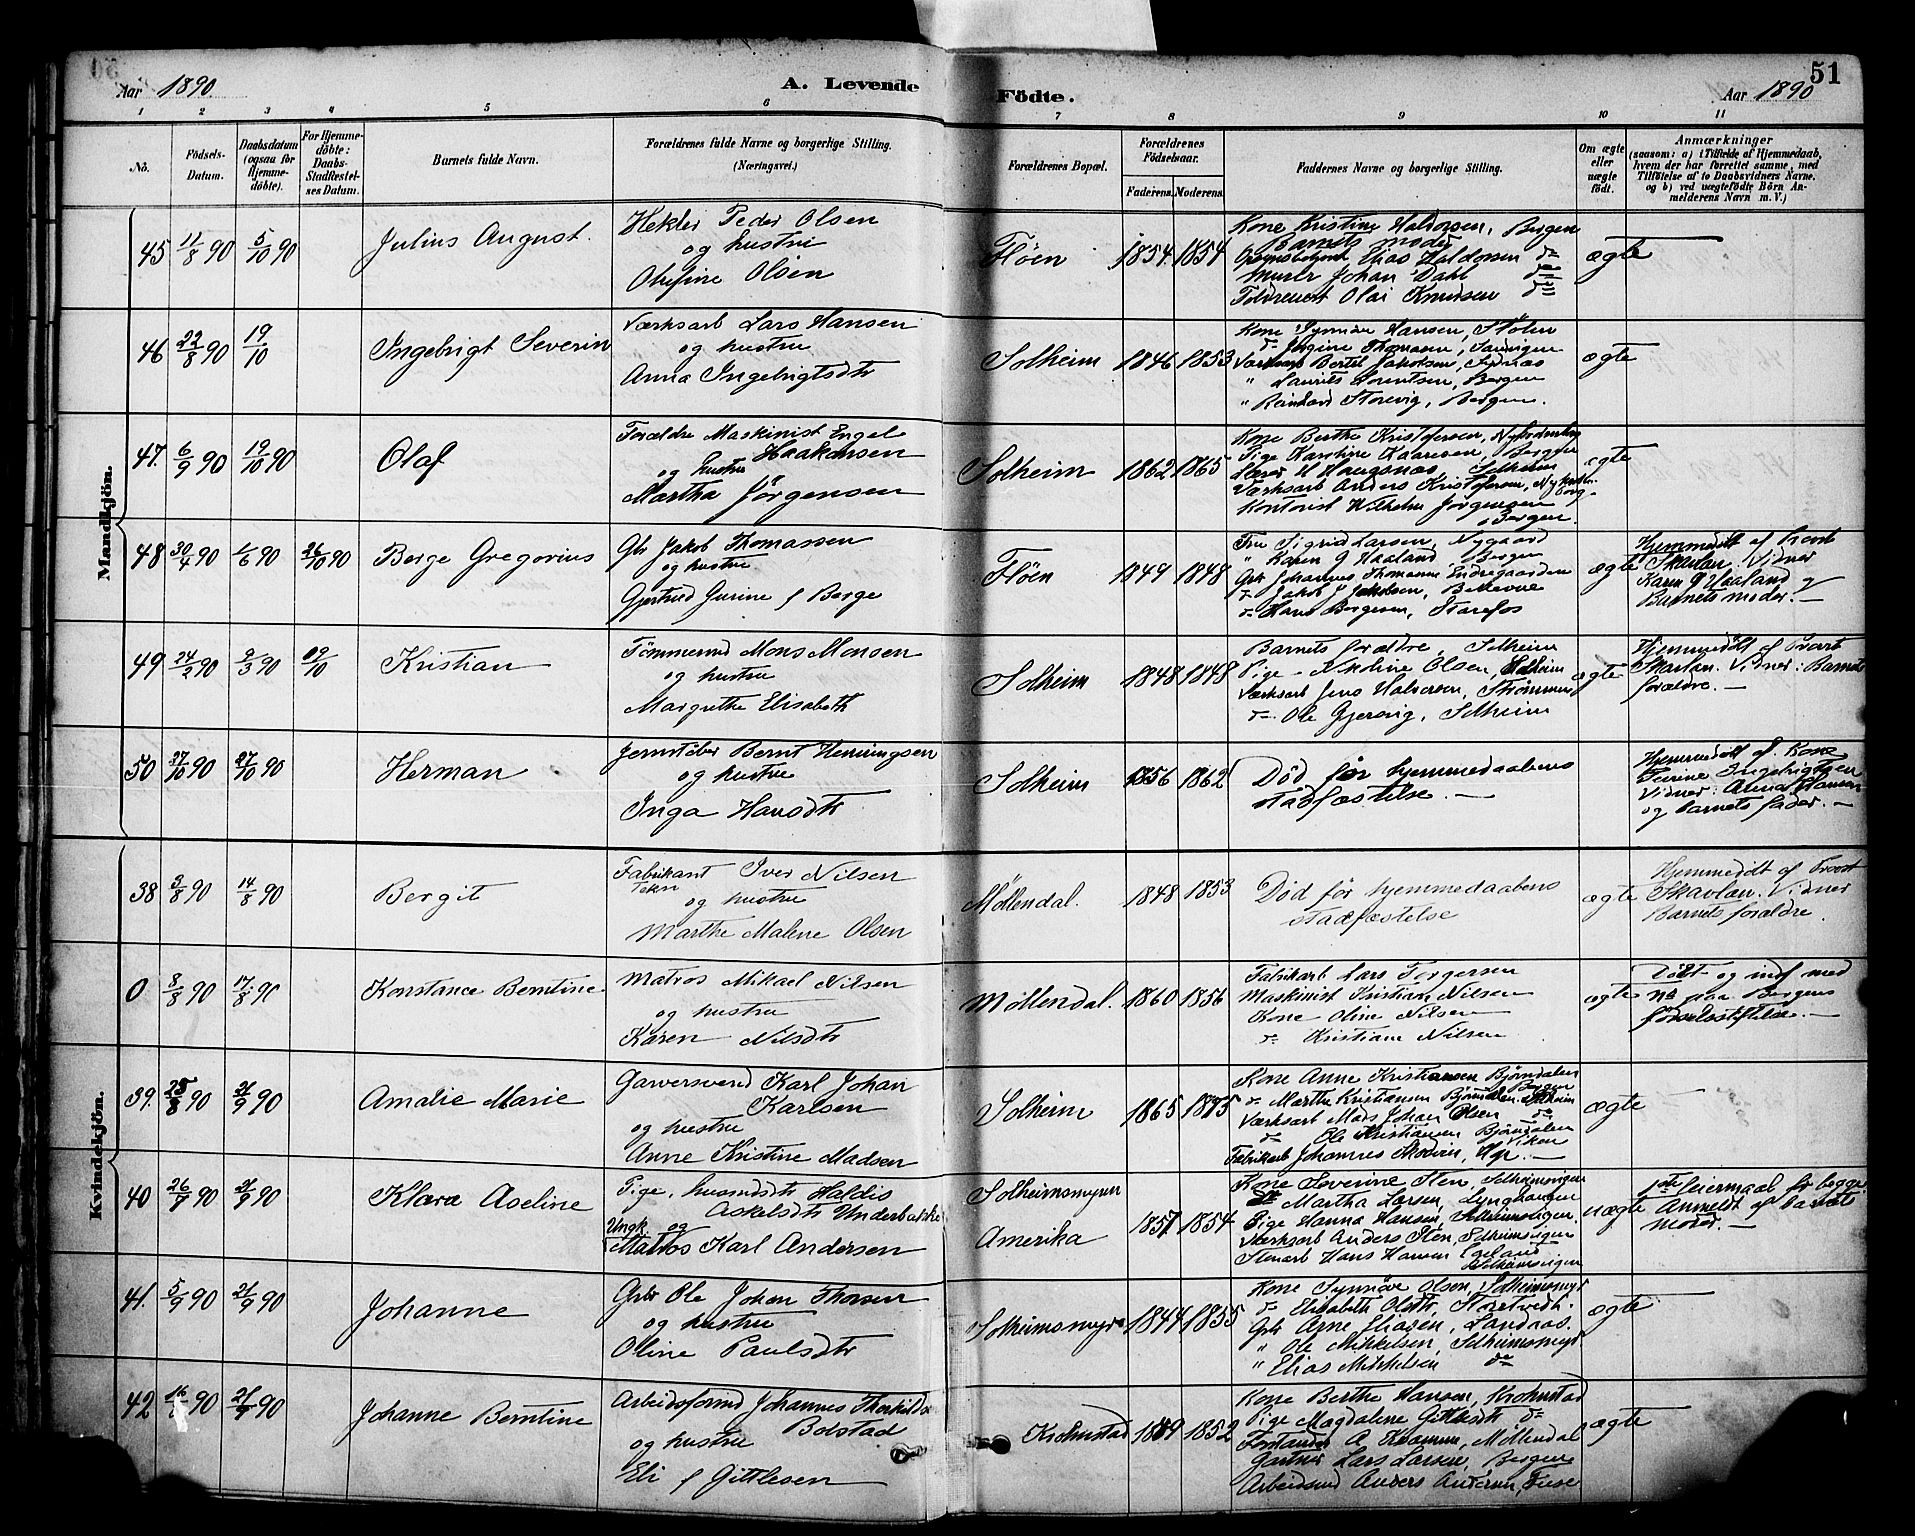 Aar 1890. A. Levende Födte. Aar 1890 51
1 2 3 4 5 6 7 8 9 10 11
No.
Födsels-Datum.
Daabsdatum (ogsaa for Hjemmedöbte).
For Hjemmedöbte: Daabs-Stadfæstelses Datum.
Barnets fulde Navn.
Forældrenes fulde Navne og borgerlige Stilling. (Næringsvei.)
Forældrenes Bopæl.
Forældrenes Födselsaar.
Faderens. Moderens.
Faddernes Navne og borgerlige Stilling.
Om ægte eller uægte födt.
Anmærkninger
(saasom: a) i Tilfælde af Hjemmedaab, hvem der har forrettet samme, med Tilföielse af to Daabsvidners Navne, og b) ved uægtefödte Börn Anmelderens Navn m. V.)
Mandkjön.
45 11/8 90 5/10 90 Julius August.
Hekler Peder Olsen
og hustru
Olufine Olsen
Flöen 1854. 1854
Kone Kristine Haldorsen, Bergen
Barnets moder
Elias Haldorsen do
Murer Johan Dahl do
Olai Knudsen do
ægte
46 22/8 90 19/10 Ingebrigt Severin
Værksarb Lars Hansen
og hustru
Anna Ingebrigtsdtr
Solheim 1846 1853
Kone Synnöve Hansen, Stölen
do Jörgine Thomasen, Sandvigen
Værksarb Bertel Jakobsen,
" Laurits Lorentsen, Bergen
" Reinhard Storevig, Bergen.
ægte
47. 6/9 90 19/10 90 Olaf
Forældre Maskinist Engel
Haakonsen
og hustru
Martha Jörgensen
Solheim 1862 1865
Kone Berthe Kristofersen,
Pige Karoline Kaaresen, Bergen
H Haugsnæs, Solheim
Værksarb Anders Kristofersen,
Kontorist Wilhelm Jörgensen
Bergen.
ægte
48 30/4 90 1/6 90 26/10 90 Berge Gregorius
Gbr Jakob Thomassen
og hustru
Gjertrud Gurine f Berge
Flöen 1849 1848
Fru Sigrid Larsen, Nygaard
" Karen G Haaland, Bergen
Gbr Johannes Thomasen Endregaarden
do Jakob J Jakobsen, Bellevue
do Hans Bergesen, Starefos
ægte
Hjemmedöbt af Provst
Skavlan. Vidner
Karen G Haaland og
Barnets moder. —
49 24/2 90 9/3 90 19/10 Kristian
Tömmermd Mons Monsen
og hustru
Margrethe Elisabeth
Solheim 1848 1848
Barnets forældre, Solheim
Pige Nikoline Olsen, Solheim
Værksarb Jens Halvorsen, Strömmen
do Ole Gjervig, Solheim
ægte
Hjemmedöbt af Provst
Skavlan. Vidner: Barnets
forældre. —
50 27/10 90 27/10 90 Herman
Jernstöber Bernt Henningsen
og hustru
Inga Hansdtr
Solheim 1856 1862
Död för hjemmedaabens
stadfæstelse. —
Hjemmedöbt af Kone
Ingebrigtsen
Vidner: Hansen
og barnets fader. —
Kvindekjön.
38 3/8 90 14/8 90 Bergit
Fabrikant Iver Nilsen
og hustru
Marthe Malene Olsen
Möllendal. 1848 1853
Död för hjemmedaabens
stadfæstelse
ægte
Hjemmedöbt af Provst
Skavlan. Vidner
Barnets forældre.
0 8/8 90 17/8 90 Konstance Berntine
Matros Mikael Nilsen
og hustru
Karen Nilsdtr
Möllendal. 1860 1856
Fabrikarb Lars Torgersen
Maskinist Kristian Nilsen
Kone Oline Nilsen
do Kristiane Nilsen
ægte
Döbt og indf med
No paa Bergens
födselsstiftelse. —
39. 25/8 90 21/9 90 Amalie Marie
Garversvend Karl Johan
Karlsen
og hustru
Anne Kristine Madsen
Solheim 1865 1875
Kone Anne Kristiansen Björndalen
Bergen
do Marthe Kristiansen Björndalen
Værksarb Mads Johan Olsen do
do Ole Kristiansen Björndalen
Fabrikarb Johannes
ægte
40 26/7 90 21/9 90 Klara Aseline
Pige, husmdsdtr Haldis
Askelsdtr Underbakke
Ungk og
Matros Karl Andersen
Solheimsmyren
Amerika
1857 1854
Kone Severine Sten, Solheimsvigen
do Martha Larsen, Lynghaugen
Pige Hanna Hansen, Solheimsvigen.
Værksarb Anders Sten, Solheimsvigen
Stenarb Hans Hansen
Solheimsvigen
uægte
1ste leiermaal for begge
Anmeldt af barnets
moder. —
41. 5/9 90 21/9 90 Johanne
Gbr Ole Johan Thorsen
og hustru
Oline Paulsdtr
Solheimsmyr 1844 1855
Kone Synnöve Olsen, Solheimsmyr
do Elisabeth Olsdtr, Storetvedt.
Gbr Arne Eliasen, Landaas
" Ole Mikkelsen, Solheimsmyr
" Elias Mikkelsen do
ægte
42 90 21/9 90 Johanne Berntine
Arbeidsformd Johannes
Bolstad
og hustru
Eli f Gittlesen
Krohnstad 1849 1852
Kone Berthe Hansen, Krohnstad
Pige Magdalene do
Forstander A Kvamme, Möllendal
Gartner Lars Larsen, Bergen
Arbeidsmd Anders Andersen,
ægte